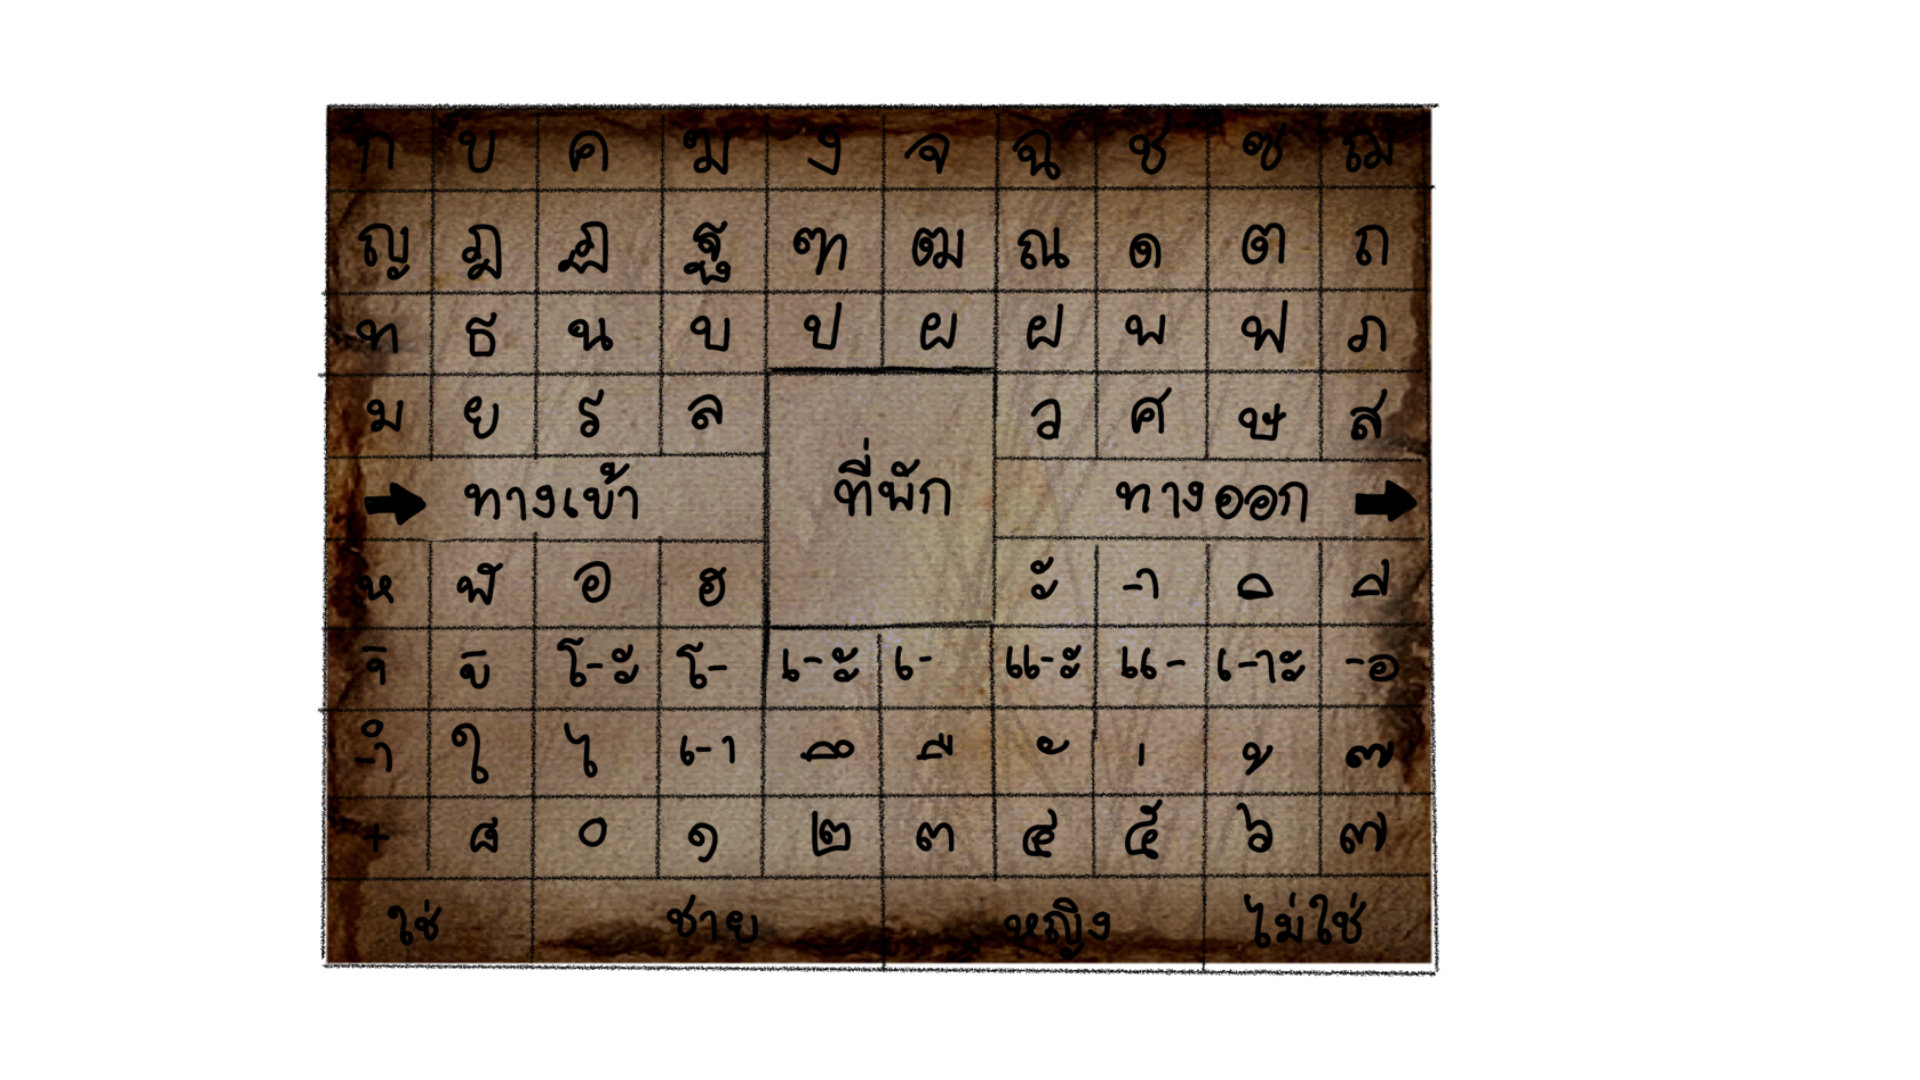 ก ข ค ฆ ง จ ฉ ช ซ ฌ
ญ ฎ ฏ ฐ ฑ ฒ ณ ด ต ถ
ท ธ น บ ป ผ ฝ พ ฟ ภ
ม ย ร ล ว ศ ษ ส
ทางเข้า ที่พัก ทางออก
ห ฬ อ ฮ ะ -า ิ ี
โ-ะ โ- เ-ะ เ- แ-ะ แ- เ-าะ -อ
-ำ ใ ไ เ-า ึ ื ั ่ ้ ๊
+ ๐ ๑ ๒ ๓ ๔ ๕ ๖ ๗
ใช่ ชาย หญิง ไม่ใช่